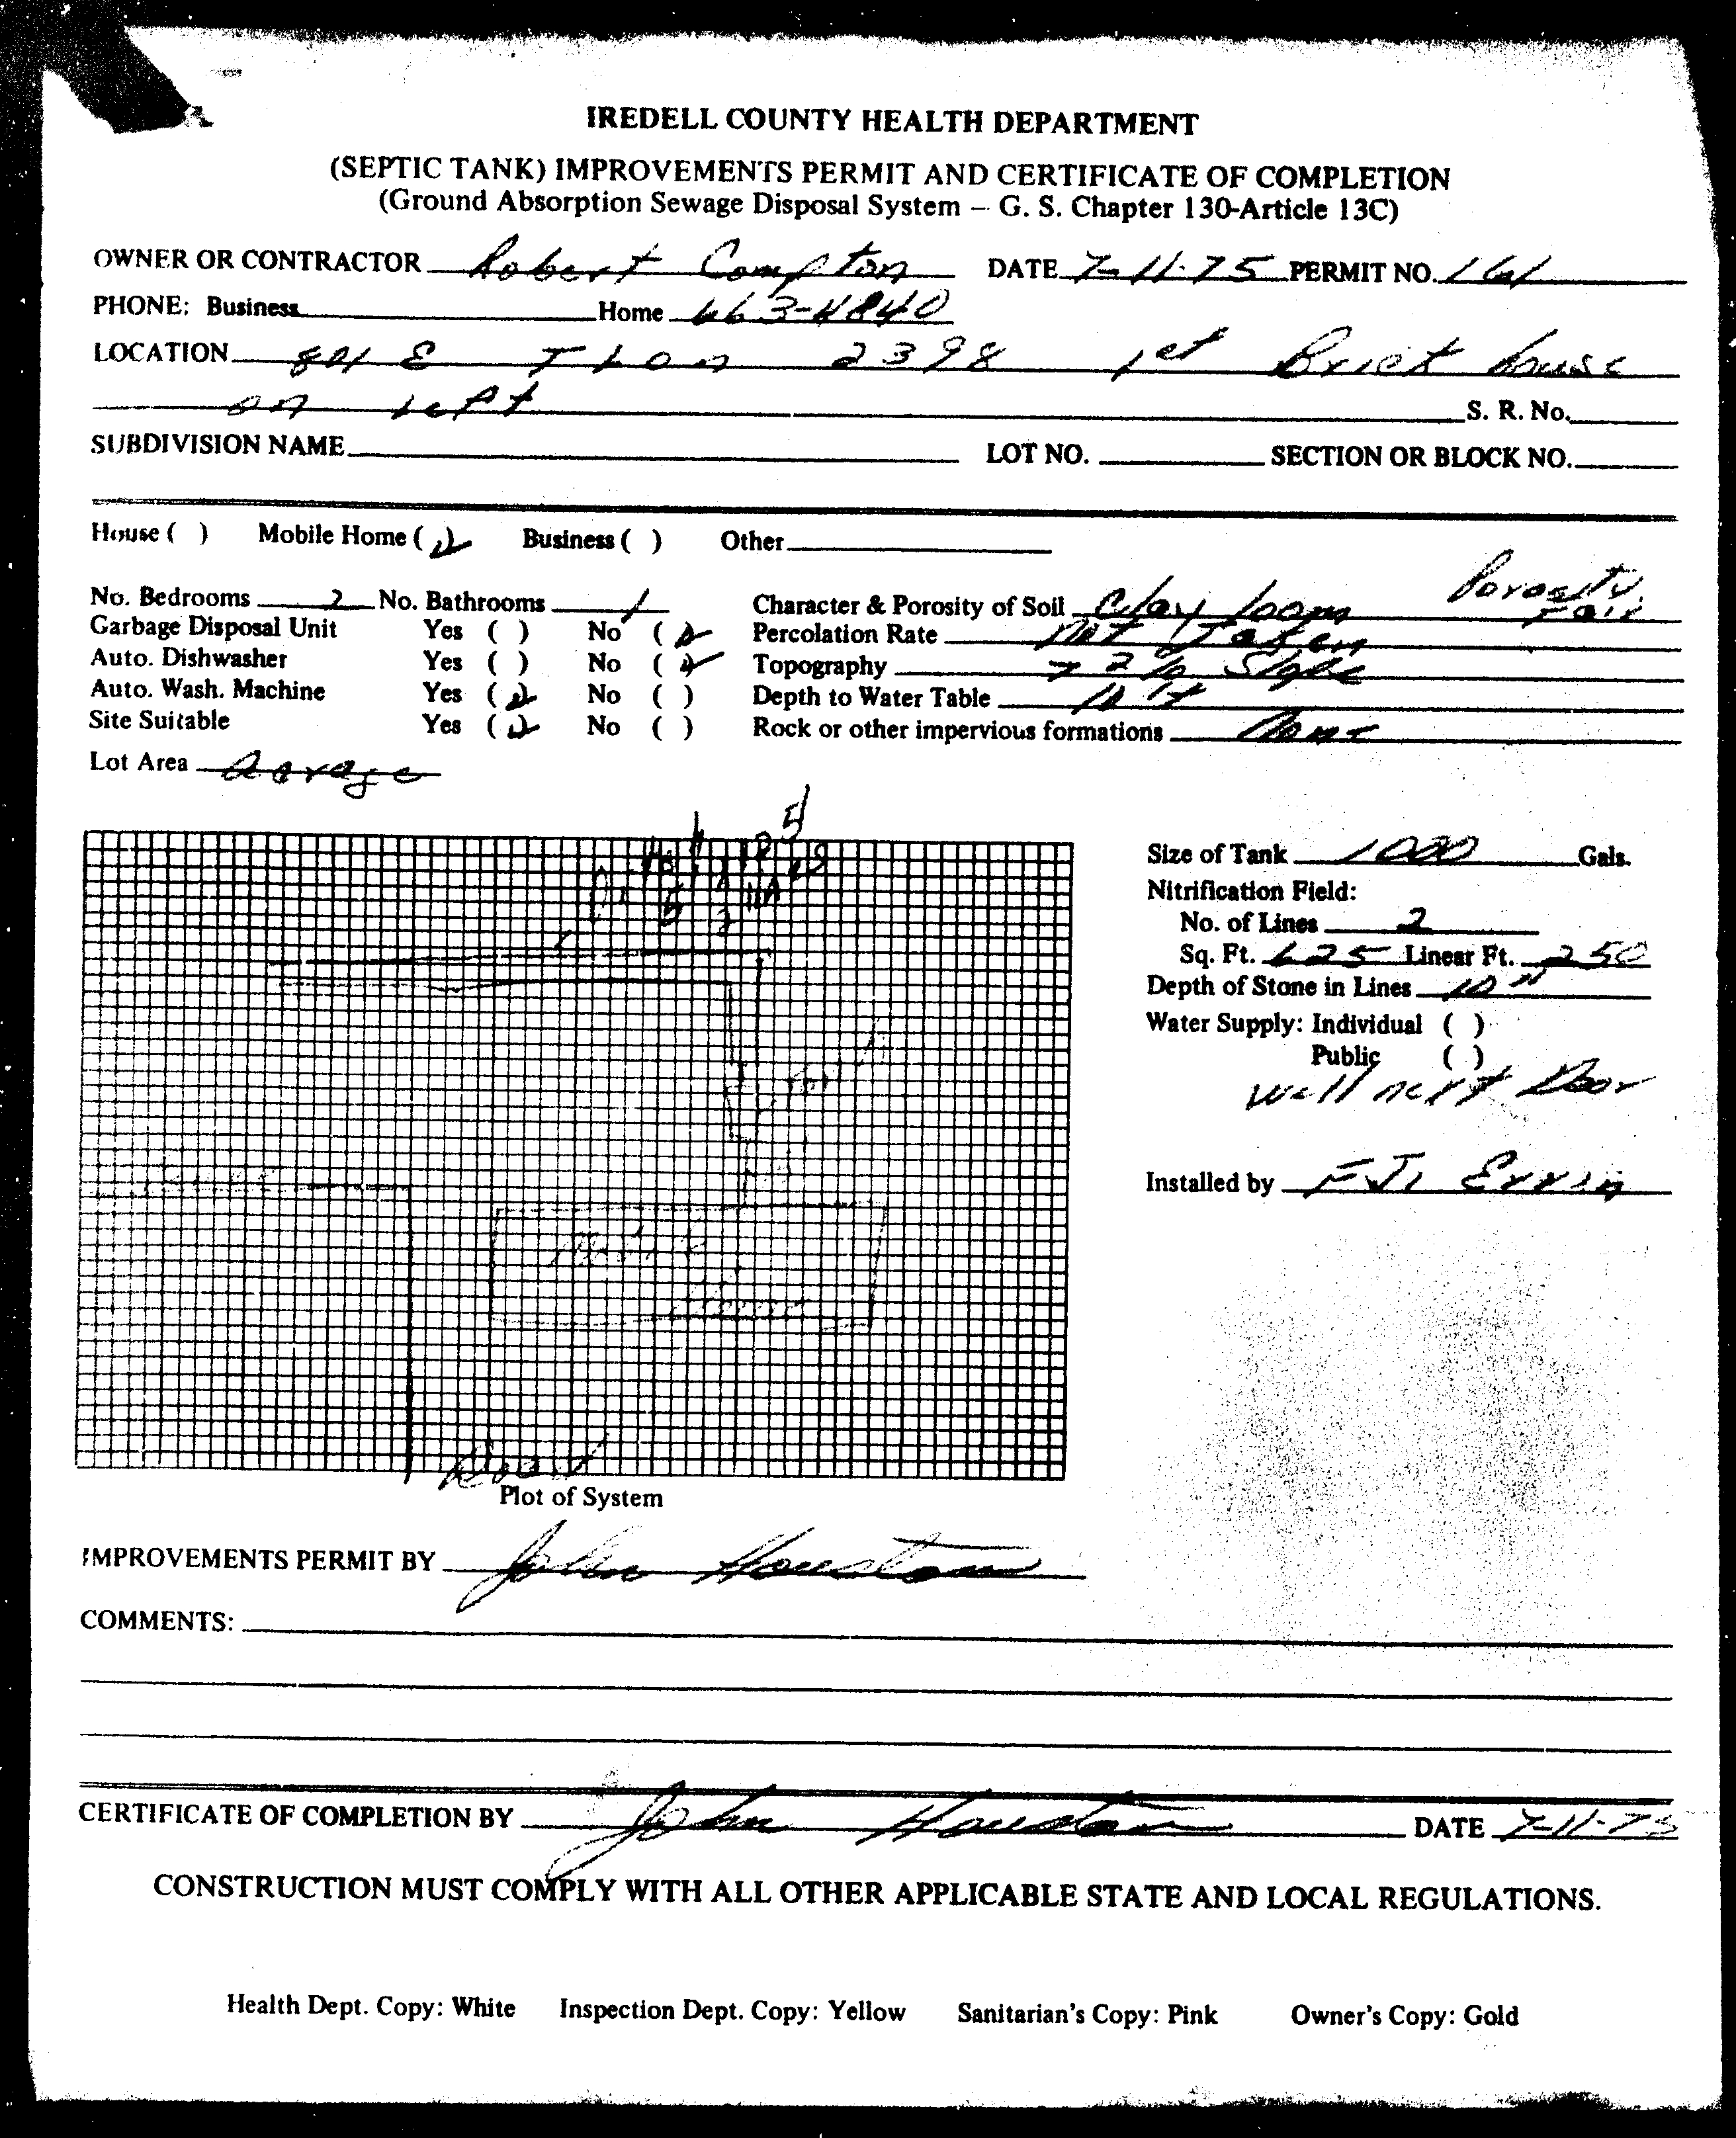 IREDELL COUNTY HEALTH DEPARTMENT
(SEPTIC TANK) IMPROVEMENTS PERMIT AND CERTIFICATE OF COMPLETION
(Ground Absorption Sewage Disposal System – G. S. Chapter 130-Article 13C)
OWNER OR CONTRACTOR Robert Compton DATE 7-11-75 PERMIT NO. 161
PHONE: Business Home 663-4840
LOCATION 801 E Thon 2398 1st Brick house
on left S. R. No.
SUBDIVISION NAME LOT NO. SECTION OR BLOCK NO.
House ( ) Mobile Home ( ) Business ( ) Other
No. Bedrooms 2 No. Bathrooms 1 Character & Porosity of Soil Clay loam Porosity Fair
Garbage Disposal Unit Yes ( ) No ( ) Percolation Rate Not Taken
Auto. Dishwasher Yes ( ) No ( ) Topography 2% Slope
Auto. Wash. Machine Yes ( ) No ( ) Depth to Water Table
Site Suitable Yes ( ) No ( ) Rock or other impervious formations None
Lot Area Acrage
Size of Tank 1000 Gals.
Nitrification Field:
No. of Lines 2
Sq. Ft. 625 Linear Ft. 250
Depth of Stone in Lines 10"
Water Supply: Individual ( )
Public ( )
Well next Door
Installed by F.J. Ervin
Mobile
Home
Road
Plot of System
IMPROVEMENTS PERMIT BY John Houston
COMMENTS:
CERTIFICATE OF COMPLETION BY John Houston DATE 7-11-75
CONSTRUCTION MUST COMPLY WITH ALL OTHER APPLICABLE STATE AND LOCAL REGULATIONS.
Health Dept. Copy: White Inspection Dept. Copy: Yellow Sanitarian's Copy: Pink Owner's Copy: Gold